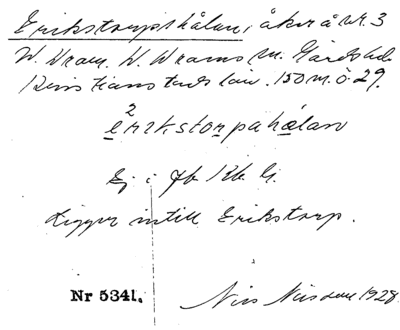 Erikstorpshålan, åker å nr. 3
W. Wram, W. Wrams sn. Gärds hd.
Kristianstads län. 150 m. ö. 29.
2
erikstorpahålan
Ej i Jb. Kb. G.
Ligger intill Erikstorp.
Nr 5341.
Nils Nilsson 1928